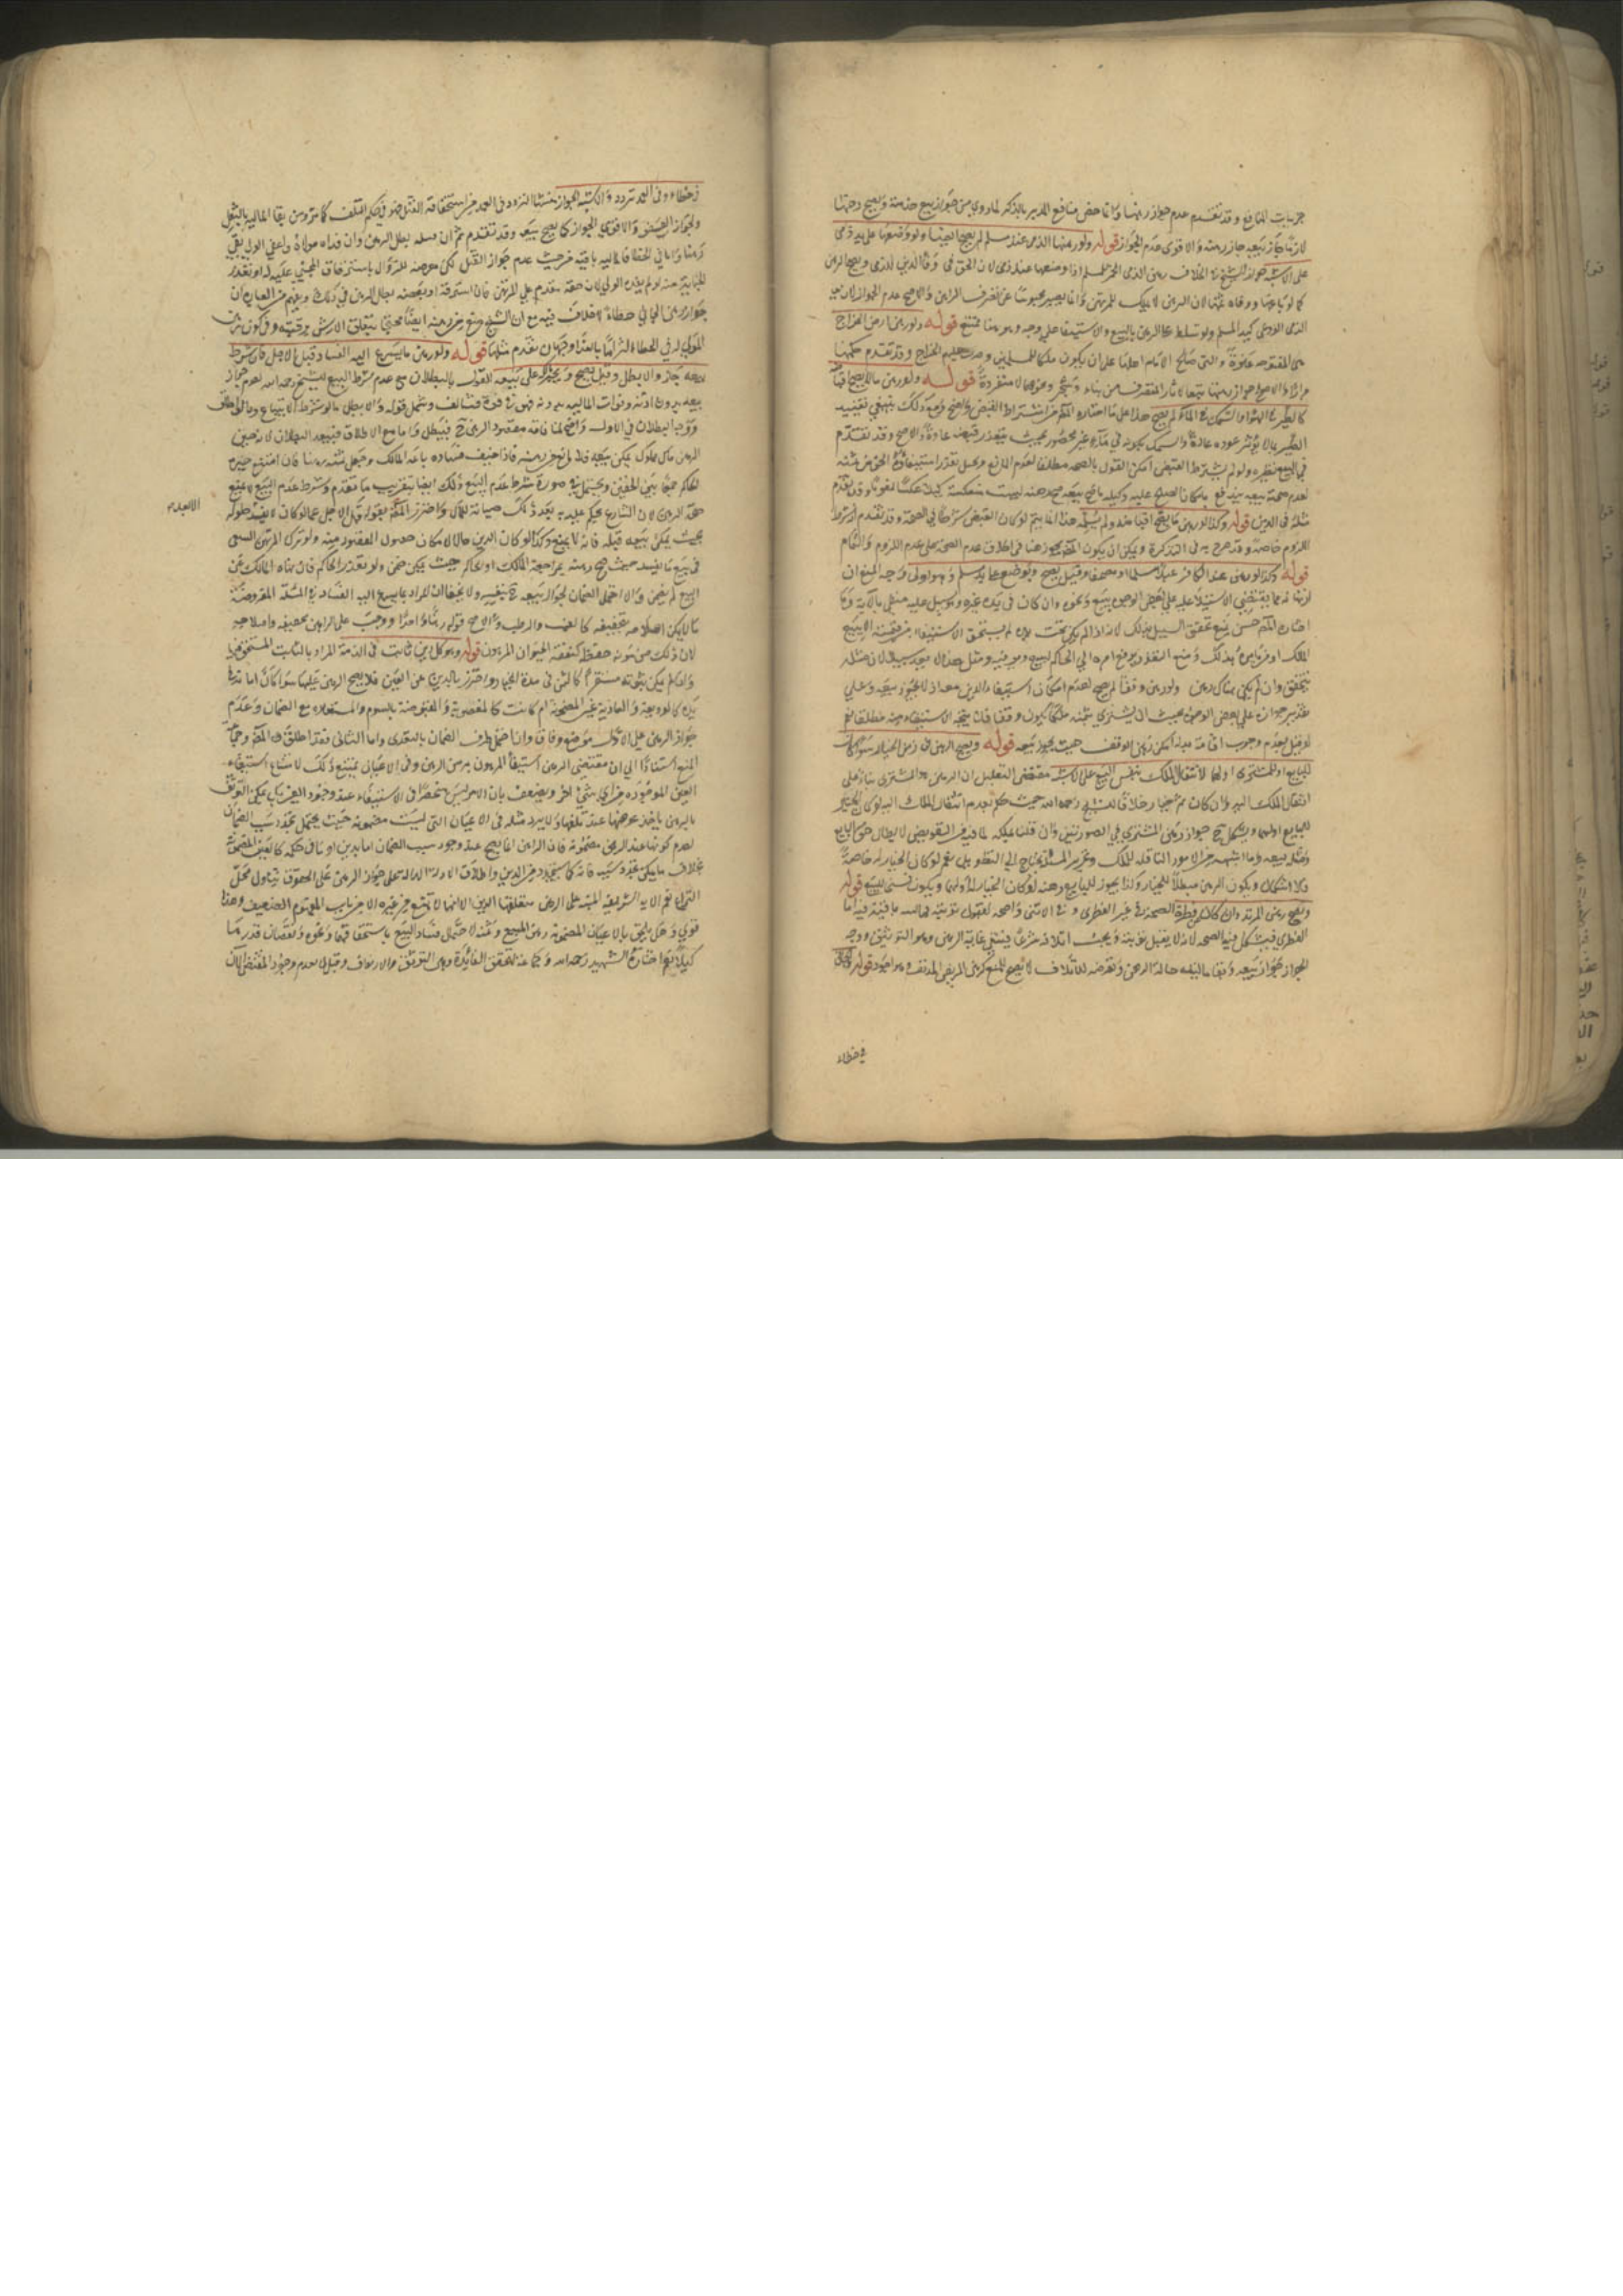 جزئيات المنافع وقد تقدم عدم جواز رهنها وانما خص منافع المدبر بالذكر لما روي من جواز بيع خدمته ويصح رهنها
لان ما جاز بيعه جاز رهنه والاقوى عدم الجواز قوله ولو رهنها الذمي عند مسلم لم يصح ايضا ولو وضعها على يد ذمي
على الاشبه الخلاف رهن الذمي الخمر للمسلم اذا وضعها عند ذمي لان الحق في وفاء الدين للذمي ويصح الرهن
كما لو باعها ووفاه ثمنها لان الرهن لا يملك للمرتهن وانما يصير محبوسا عن تصرف الراهن والاصح عدم الجواز لان يد
الذمي الودعي كيد المسلم ولو تسلط على الرهن بالبيع والاستيفاء على وجه وهو هنا ممتنع قوله ولو رهن ارض الخراج
هي المفتوحه عنوة والتي صالح الامام اهلها على ان يكون ملكا للمسلمين وضرب عليهم الخراج وقد تقدم حكمها
والاصح جواز رهنها تبعا لاثار المتصرف من بناء وشجر ونحوهما لا منفردة قوله ولو رهن ما لا يصح اقباضه
كالطير في الهواء والسمك في الماء لم يصح هذا على ما اختاره المصنف من اشتراط القبض واضح ومع ذلك ينبغي تقييد
الطير بما لا يؤثر عوده عادة والسمك بكونه في ماء غير محصور بحيث يتعذر قبضه عادة والاصح وقد تقدم
في البيع نظيره ولو لم يشترط القبض امكن القول بالصحه مطلقا لعدم المانع وتخيل تعذر استيفاء الحق من ثمنه
لعدم صحة بيعه يندفع بامكان الصلح عليه وكليه ما صح بيعه صح رهنه ليست منعكسة كليا عكسا لغويا وقد تقدم
مثله في الدين قوله وكذا لو رهن ما يصح اقباضه ولم يسلمه هذا انما يتم لو كان القبض شرطا في الصحة وقد تقدم انه شرط
اللزوم خاصة وقد صرح به في التذكرة ويمكن ان يكون المصنف تجوز هنا في اطلاق عدم الصحه على عدم اللزوم والتمام
قوله وكذا لو رهن عند الكافر عبدا مسلما او مصحفا وقيل يصح ويوضع على يد مسلم وهو اولى وجه المنع ان
ارتهانه مما يقتضي الاستيلاء عليه على بعض الوجوه ببيع ونحوه وان كان في يد غيره وهو سبيل عليه منفي بالاية وما
اختاره المصنف حسن لمنع تحقق السبيل بذلك لانه اذا لم يكن تحت يده لم يستحق الاستيفاء من قيمته الا ببيع
المالك او من يأمره بذلك ومع التعذر يرفع امره الى الحاكم ليبيع ويوفيه ومثل هذا لا يعد سبيلا لان مثله
يتحقق وان لم يكن هناك رهن ولو رهن وقفا لم يصح لعدم امكان استيفاء الدين منه اذ لا يجوز بيعه وعلى
تقدير جوازه على بعض الوجوه بحيث ان يشتري بثمنه ملكا يكون وقفا فلا يتجه الاستيفاء منه مطلقا نعم
لو قيل بعدم وجوب اقامة بدله امكن رهن الوقف حيث يجوز بيعه قوله ويصح الرهن في زمن الخيار سواء كان
للبايع او للمشتري او لهما لانتقال الملك بنفس البيع على الاشبه مقتضى التعليل ان الرهن من المشتري بناء على
انتقال الملك اليه وان كان ثم خيار خلافا للشيخ رحمه الله حيث حكم بعدم انتقال الملك اليه لو كان الخيار
للبايع او لهما ويشكل ح جواز رهن المشتري في الصورتين وان قلنا بملكه لما فيه من التعريض لابطال حق البايع
ومثله بيعه وما اشبهه من الامور الناقله للملك وتحرير المسئلة يحتاج الى التطويل نعم لو كان الخيار له خاصة
فلا اشكال ويكون الرهن مبطلا للخيار وكذا يجوز للبايع رهنه لو كان الخيار له او لهما ويكون فسخا للبيع قوله
ويصح رهن المرتد وان كان عن فطرة الصحة في غير الفطري وفي الانثى واضحه لقبول توبته فماليته باقية فيه اما
الفطري فيشكل فيه الصحه لانه لا يقبل توبته ويجب اتلافه شرعا فينتفي غاية الرهن وهو التوثيق ووجه
الجواز جواز بيعه وبقاء ماليته حالة الرهن وتعرضه للاتلاف لا يصلح للمنع كرهن المريض المدنف وهو اجود قوله والجاني
في خطاء
خطاء وفي العمد تردد والاشبه الجواز منشا التردد في العمد من استحقاقه القتل فهو في حكم التالف كالمرتد ومن بقا الماليه بالفعل
ولجواز العفو والاقوى الجواز كما يصح بيعه وقد تقدم ثم ان قتله بطل الرهن وان فداه مولاه او عفى الولي بقي
رهنا واما في الخطا فالماليه باقيه من حيث عدم جواز القتل لكن معرضه للزوال باسترقاق المجني عليه له او بقدر
الجناية منه لو لم يفده المولى لان حقه مقدم على المرتهن فان استرقه او بعضه بطل الرهن في ذلك ويفهم من العبارة ان
جواز رهن الجاني خطاء لا خلاف فيه مع ان الشيخ منع من رهنه ايضا محتجا بتعلق الارش برقبته وفي كون رهن
المولى له في الخطاء التزاما بالفداء وجهان تقدم مثلهما قوله ولو رهن ما يسرع اليه الفساد قبل الاجل فان شرط
بيعه جاز والا بطل وقيل يصح ويجبر على بيعه القول بالبطلان مع عدم شرط البيع للشيخ رحمه الله لعدم جواز
بيعه بدون اذنه وفوات الماليه بدونه فهو في قوة التالف ويشمل قوله والا بطل ما لو شرط الا يباع وما لو اطلق
ووجه البطلان في الاول واضح لمنافاته مقصود الرهن ح فيبطل واما مع الاطلاق فيبعد البطلان لانه حين
الرهن مال مملوك يمكن بيعه فلا مانع من رهنه فاذا خيف فساده باعه المالك وجعل ثمنه رهنا فان امتنع جبره
الحاكم جمعا بين الحقين ويحتمل في صورة شرط عدم البيع ذلك ايضا بتقريب ما تقدم وشرط عدم البيع لا يمنع
صحة الرهن لان الشارع يحكم عليه به بعد ذلك صيانة للمال واحترز المصنف بقوله قبل الاجل عما لو كان لا يفسد حلوله
بحيث يمكن بيعه قبله فانه لا يمنع وكذا لو كان الدين حالا لامكان حصول المقصود منه ولو ترك المرتهن السعي
في بيع ما يفسد حيث صح رهنه بمراجعة المالك او الحاكم حيث يمكن ضمن ولو تعذر الحاكم فان نهاه المالك عن
البيع لم يضمن والا احتمل الضمان لجواز بيعه ح بنفسه ولا يخفى ان المراد بما يسرع اليه الفساد في المسئلة المفروضة
ما لا يمكن اصلاحه بتجفيفه كالعنب والرطب والاصح قوله رهنه ووجب على الراهن تجفيفه واصلاحه
لان ذلك من مؤنة حفظه كنفقة الحيوان المرهون قوله وهو كل دين ثابت في الذمة المراد بالثابت المستحق فيها
وان لم يكن ثبوته مستقرا كالثمن في مدة الخيار واحترز بالدين عن العين فلا يصح الرهن عليها سواء كان امانة في
يده كالوديعة والعارية غير المضمونه ام كانت كالمغصوبة والمقبوضة بالسوم والمستعاره مع الضمان وعدم
جواز الرهن على الاول موضع وفاق وان احتمل طرو الضمان بالتعدي واما الثاني فقد اطلق المصنف وجماعة
المنع استنادا الى ان مقتضى الرهن استيفاء المرهون به من الرهن وفي الاعيان يمتنع ذلك لامتناع استيفاء
العين الموجوده من شيء اخر ويضعف بان الامر ليس منحصرا في الاستيفاء عند وجود العين بل يمكن التوثق
بالرهن باخذ عوضها عند تلفها ولا يرد مثله في الاعيان التي ليست مضمونه حيث يحتمل تجدد سبب الضمان
لعدم كونها عند الرهن مضمونة فان الراهن انما يصح عند وجود سبب الضمان اما بدين او ما في حكمه كالعين المضمونة
بخلاف ما يمكن تجدد سببه فانه كما سيتجدد من الدين واطلاق الادلة الدالة على جواز الرهن على الحقوق يتناول محل
النزاع نعم الاية الشريفه المنبه على الرهن متعلقها الدين الا انها لا تمنع من غيره الا من باب المفهوم الضعيف وهذا
قوي وهل يلحق بالاعيان المضمونة رهن المبيع وثمنه لاحتمال فساد البيع باستحقاقهما ونحوه ونقصان قدرهما
كيلا نعم اختاره الشهيد رحمه الله وجماعة لتحقق الفائدة وهي التوثق والارتفاق وقيل لا لعدم وجود المقتضى الان